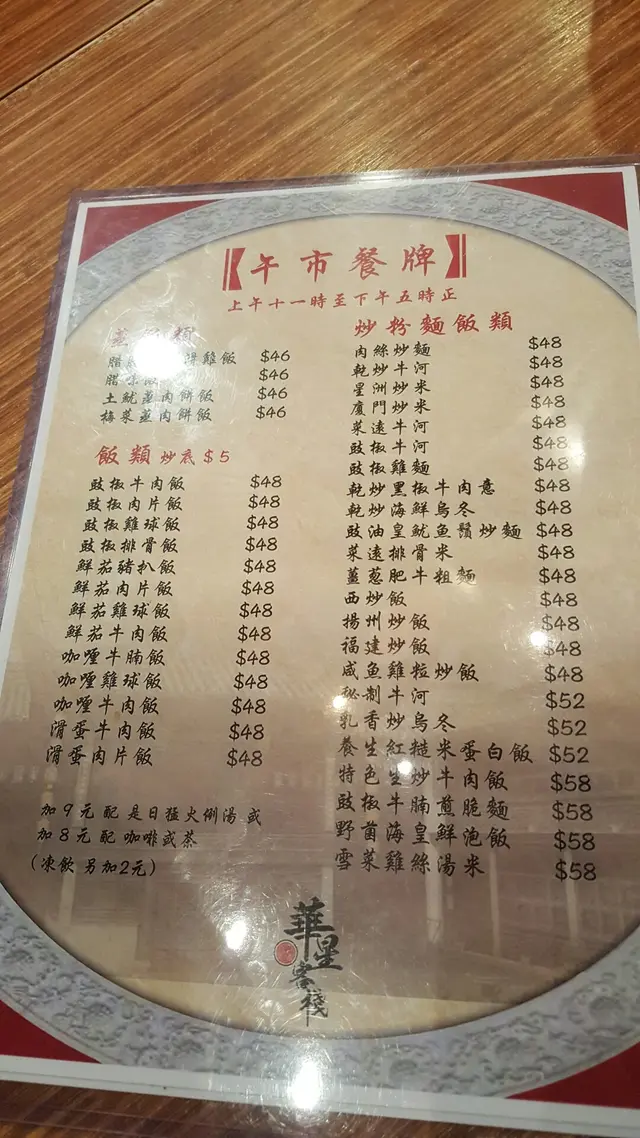 【午市餐牌】
上午十一時至下午五時正
蒸飯類
腊 滑雞飯 $46
腊味飯 $46
土魷蒸肉餅飯 $46
梅菜蒸肉餅飯 $46
飯類 炒底$5
豉椒牛肉飯 $48
豉椒肉片飯 $48
豉椒雞球飯 $48
豉椒排骨飯 $48
鮮茄豬扒飯 $48
鮮茄肉片飯 $48
鮮茄雞球飯 $48
鮮茄牛肉飯 $48
咖喱牛腩飯 $48
咖喱雞球飯 $48
咖喱牛肉飯 $48
滑蛋牛肉飯 $48
滑蛋肉片飯 $48
加9元配是日猛火例湯或
加8元配咖啡或茶
(凍飲另加2元)
炒粉麵飯類
肉絲炒麵 $48
乾炒牛河 $48
星洲炒米 $48
廈門炒米 $48
菜遠牛河 $48
豉椒牛河 $48
豉椒雞麵 $48
乾炒黑椒牛肉意 $48
乾炒海鮮烏冬 $48
豉油皇魷魚鬚炒麵 $48
菜遠排骨米 $48
薑葱肥牛粗麵 $48
西炒飯 $48
揚州炒飯 $48
福建炒飯 $48
咸魚雞粒炒飯 $48
秘制牛河 $52
乳香炒烏冬 $52
養生紅糙米蛋白飯 $52
特色生炒牛肉飯 $58
豉椒牛腩煎脆麵 $58
野菌海皇鮮泡飯 $58
雪菜雞絲湯米 $58
華星客棧